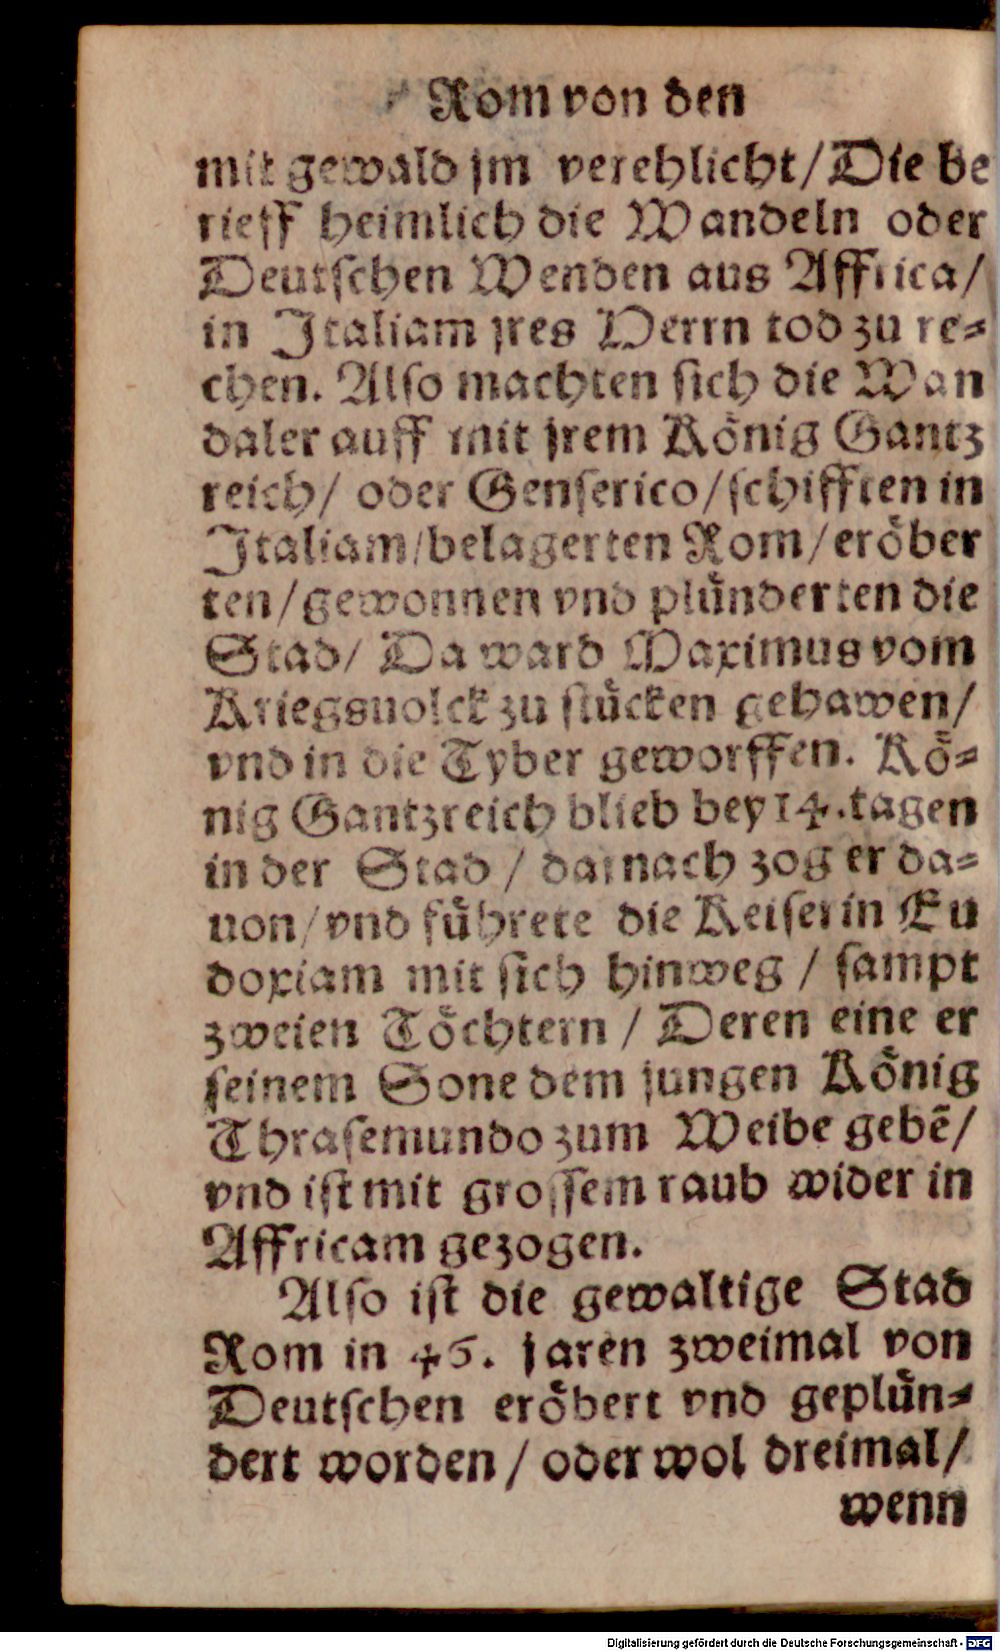 Rom von den
mit gewald jm verehlicht/Die be
rieff heimlich die Wandeln oder
Deutschen Wenden aus Affrica/
in Italiam jres Herrn tod zu re⸗
chen. Also machten sich die Wan
daler auff mit jrem König Gantz
reich/ oder Genserico/schifften in
Italiam/belagerten Rom/eröber
ten/gewonnen vnd plünderten die
Stad/ Da ward Maximus vom
Kriegsuolck zu stücken gehawen/
vnd in die Tyber geworffen. Kö⸗
nig Gantzreich blieb bey 14.tagen
in der Stad / darnach zog er da⸗
uon/vnd führete die Keiserin Eu
doxiam mit sich hinweg / sampt
zweien Töchtern / Deren eine er
seinem Sone dem jungen König
Thrasemundo zum Weibe gebē/
vnd ist mit grossem raub wider in
Affricam gezogen.
Also ist die gewaltige Stad
Rom in 46. jaren zweimal von
Deutschen eröbert vnd geplün⸗
dert worden / oder wol dreimal/
wenn
Digitalisierung gefördert durch die Deutsche Forschungsgemeinschaft - DFG